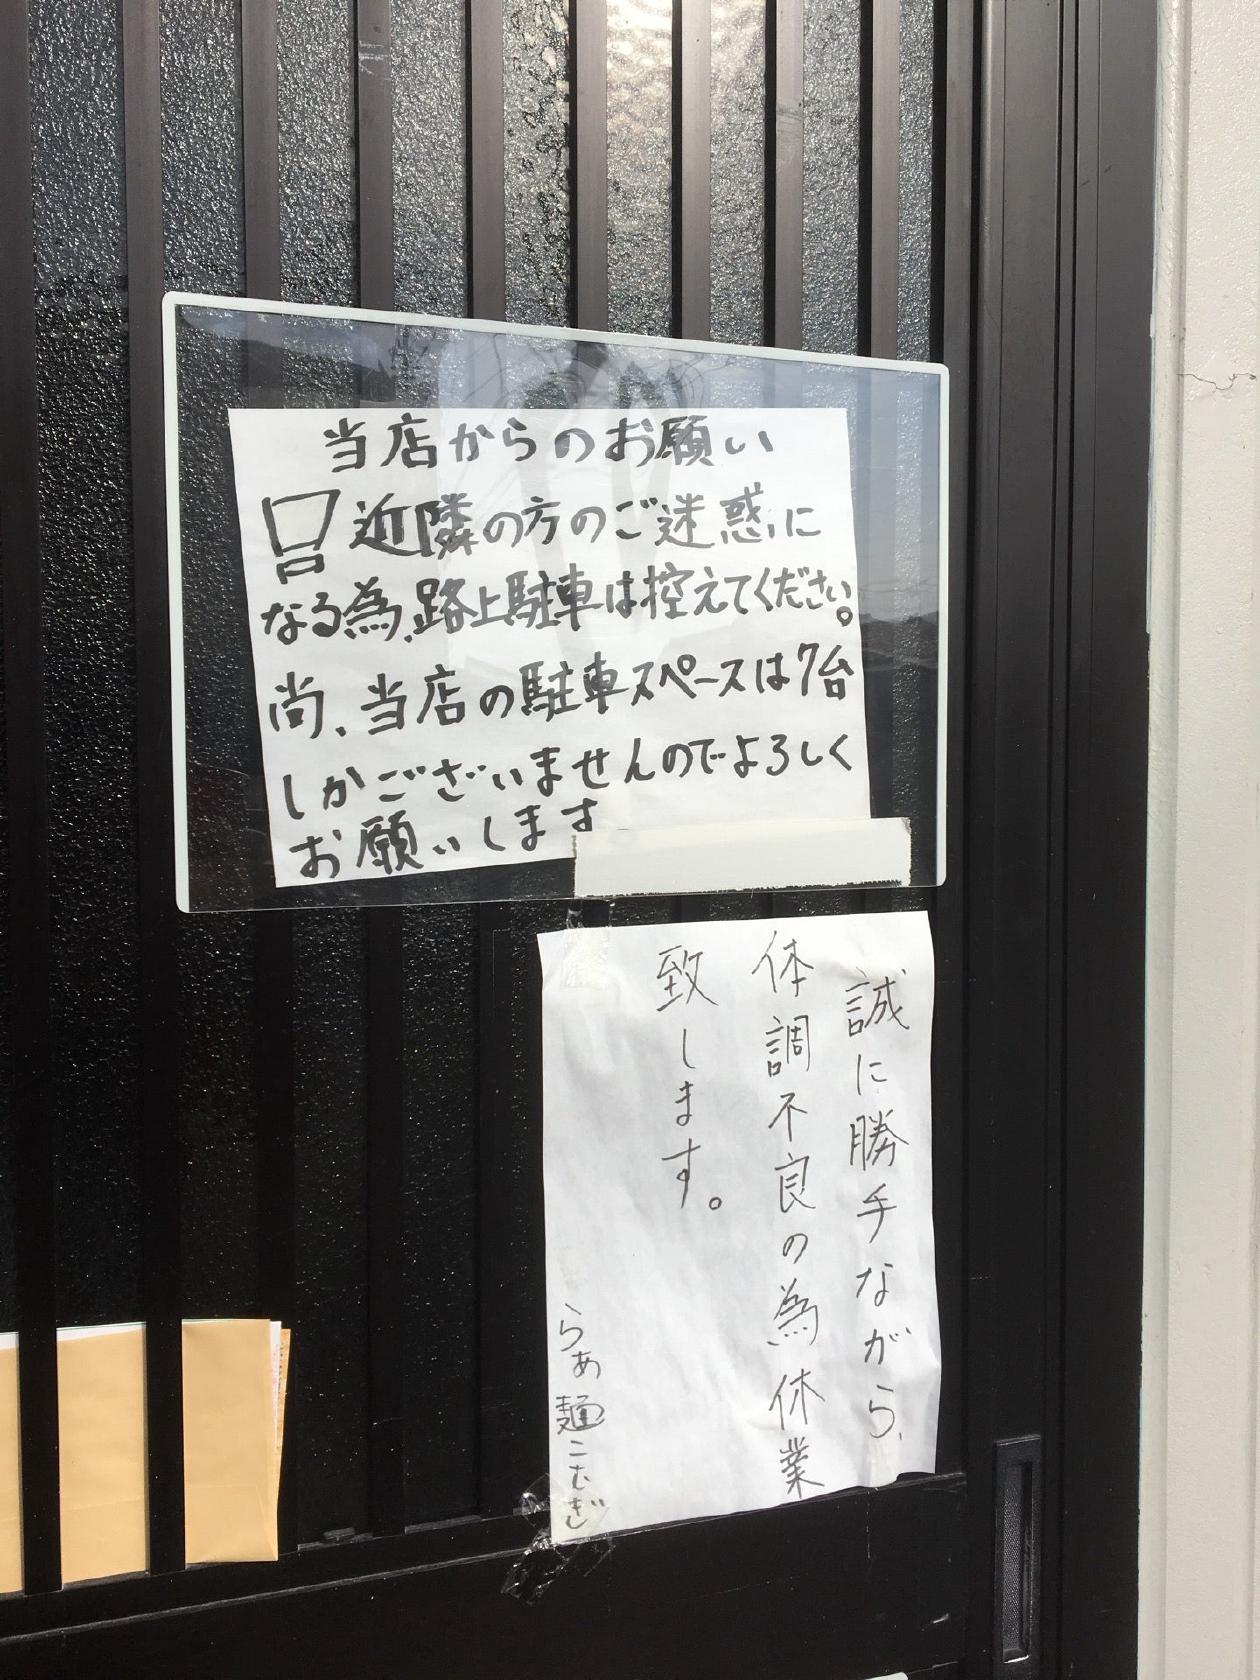 当店からのお願い
近隣の方のご迷惑に
なる為、路上駐車は控えてください。
尚、当店の駐車スペースは7台
しかございませんのでよろしく
お願いします
誠に勝手ながら、
体調不良の為休業
致します。
らぁ麺こむぎ